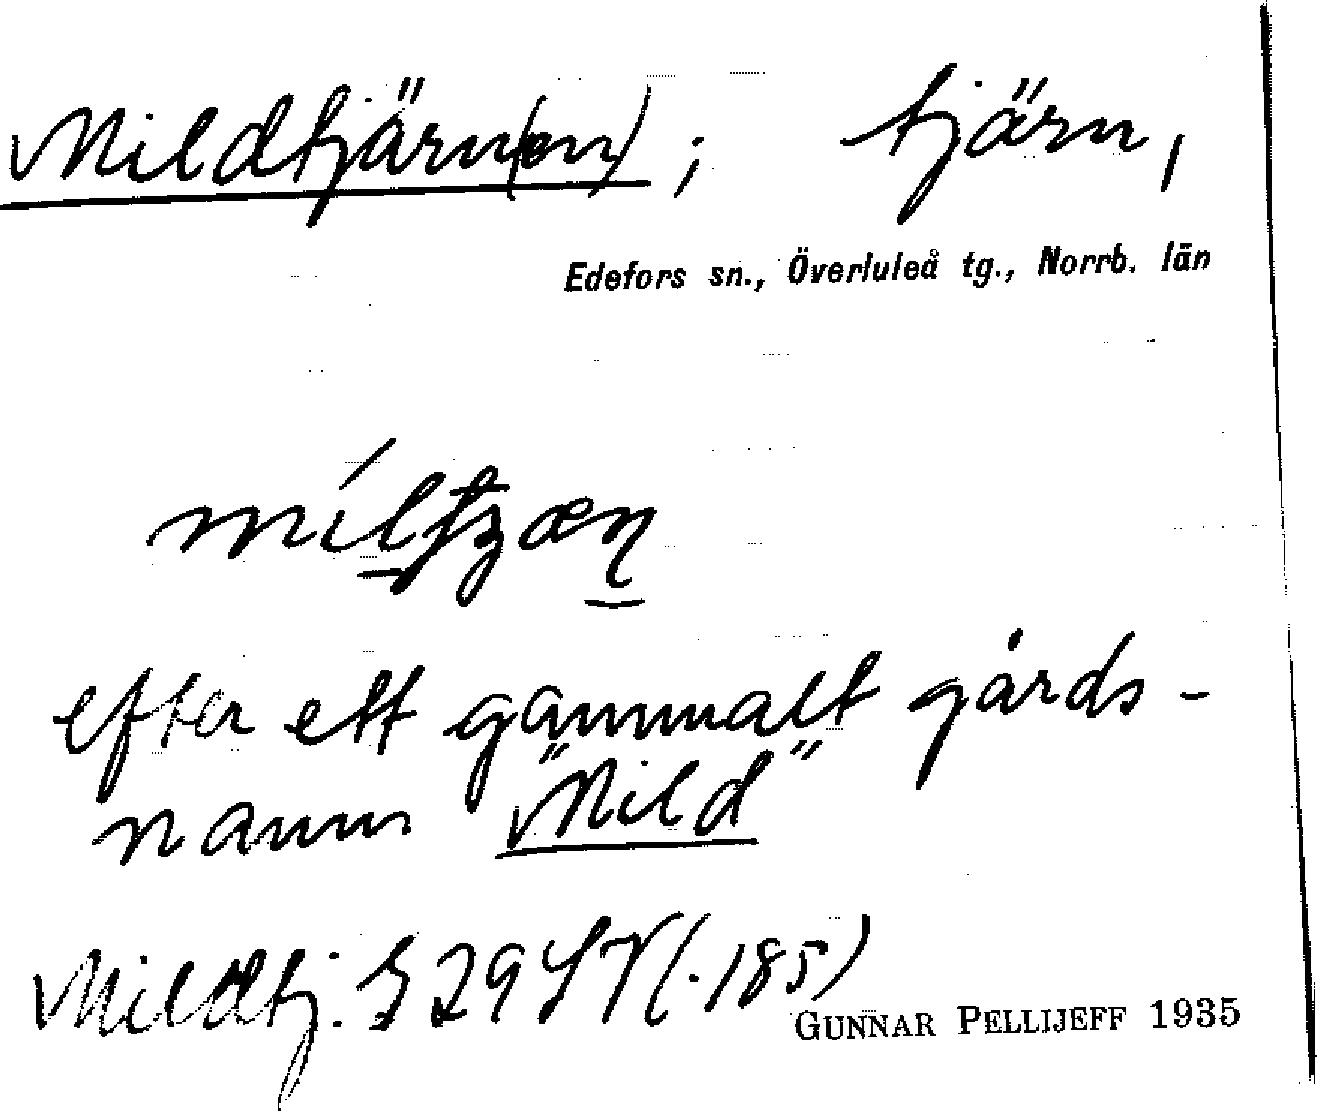 Mildtjärn(en); tjärn,
Edefors sn., Överluleå tg., Norrb. län
efter ett gammalt gårds-
namn "Mild"
Mildtj.
GUNNAR PELLIJEFF 1935